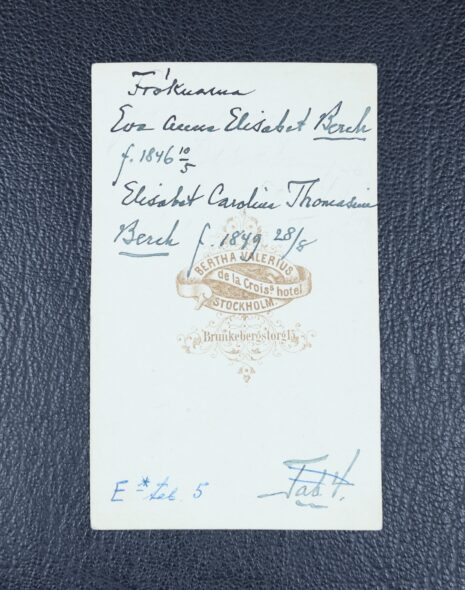 Fröknarna
Eva Anna Elisabet Berch
f. 1846 10/5
Elisabet Carolina Thomasine
Berch f. 1849 28/8
BERTHA VALERIUS
de la Croisa hotel
STOCKHOLM.
Brunkebergstorg 15.
E * tab. 5
Tab 4.